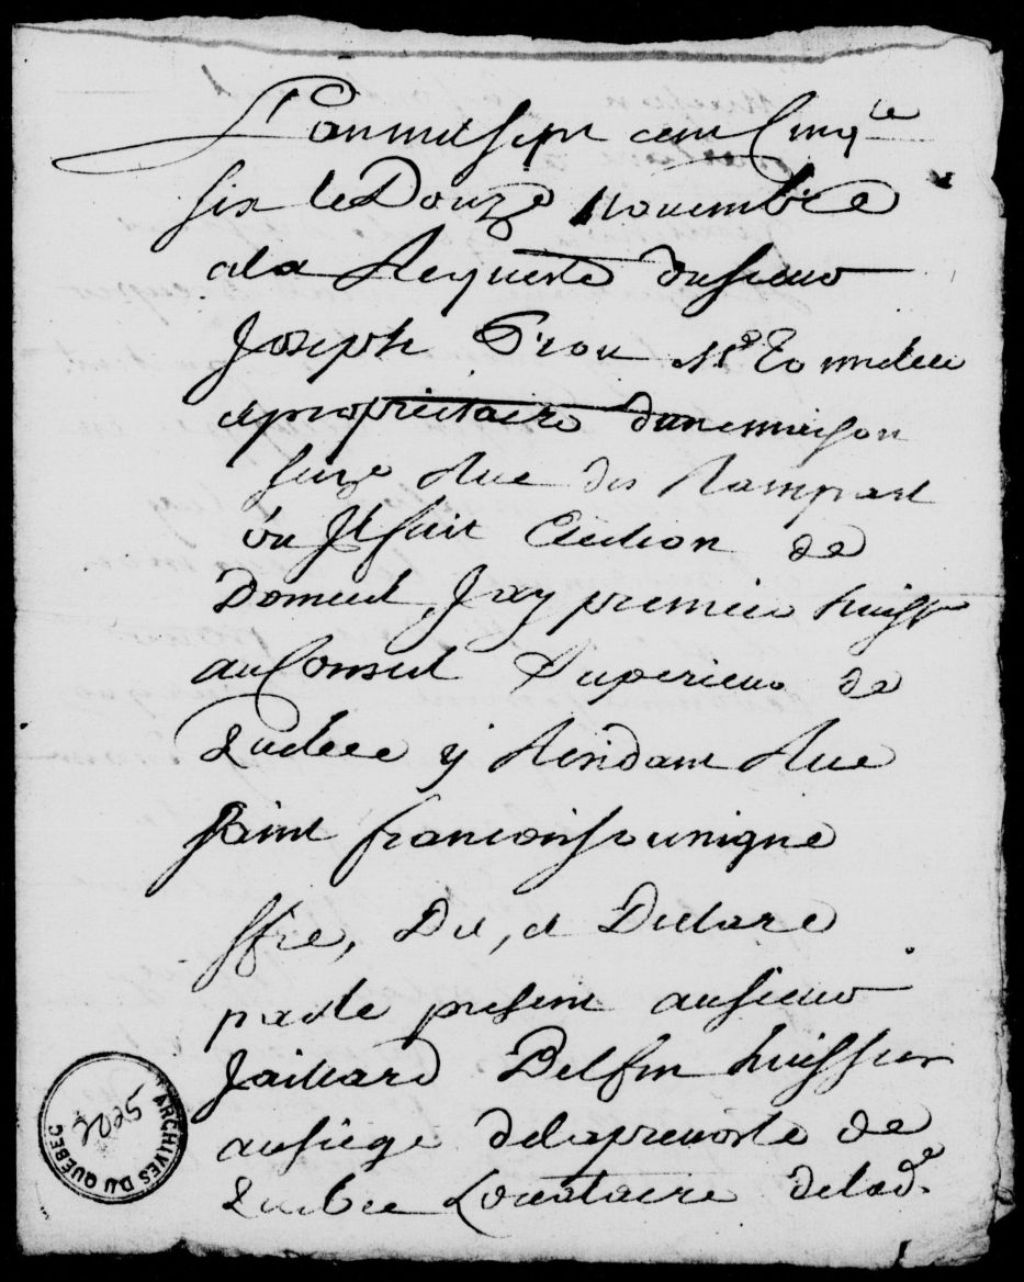 L'an mil sept cent Cinq.te
six le Douze novembre
ala Requeste du sieur
Joseph
et proprietaire dune maison
size Rue des Rampart
ou Jl fait Election de
premier huiss.r
au Conseil Superieur de
Quebec y Residant Rue
saint francois soussigne
par le present au sieur
Jaillard huissier
au siege de la prevoste de
Quebec Locataire de lad.e
ARCHIVES DU QUÉBEC